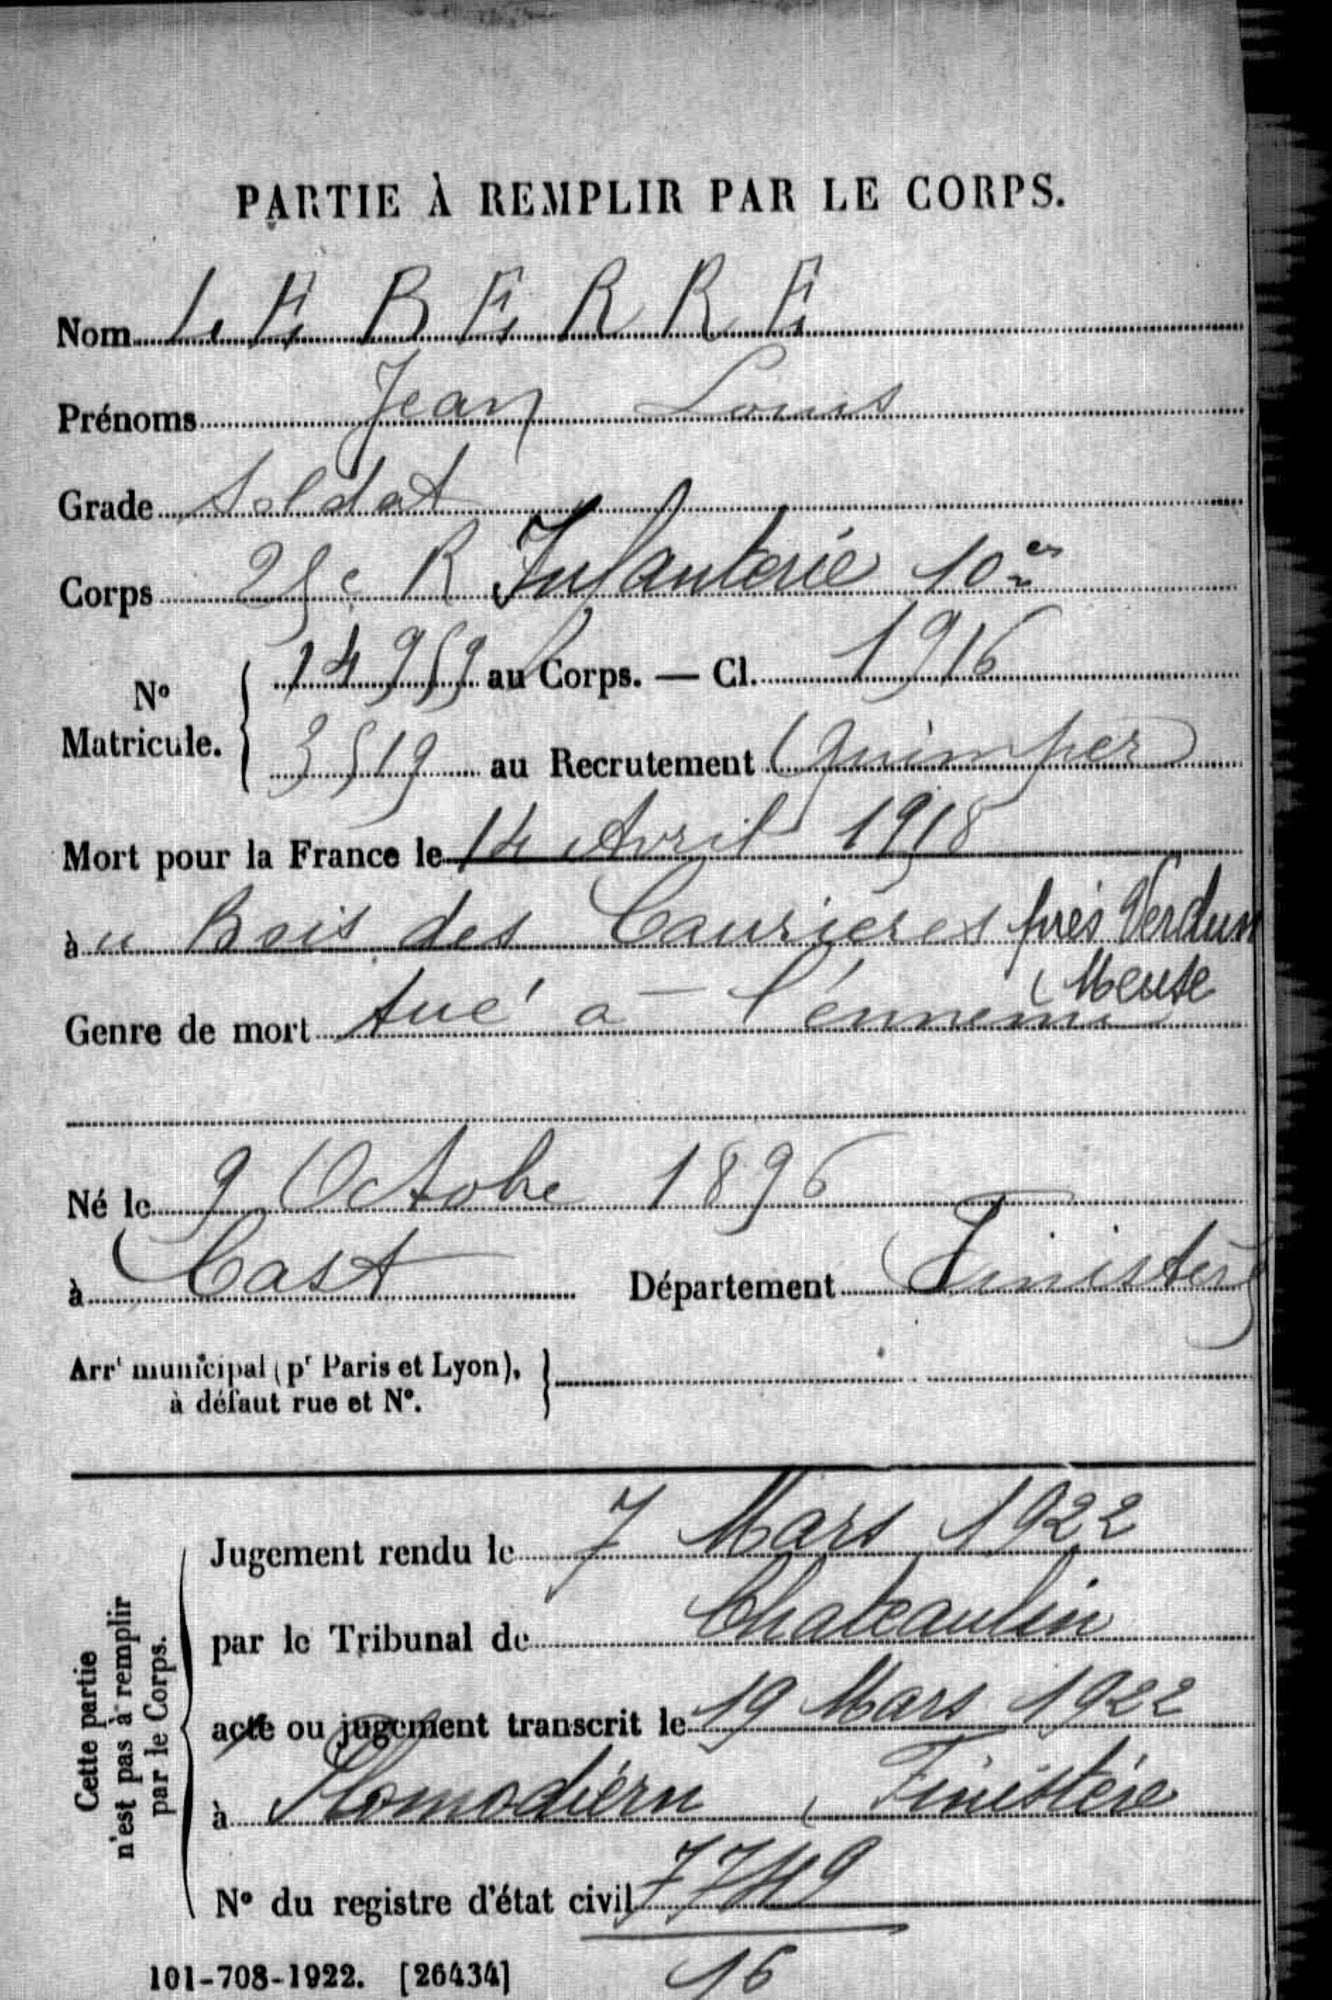 PARTIE À REMPLIR PAR LE CORPS.
Nom LE BERRE
Prénoms Jean Louis
Grade Soldat
Corps 25e R Infanterie 10
N° Matricule. 14959 au Corps. — Cl. 1916
3519 au Recrutement Quimper
Mort pour la France le 14 Avril 1918
àu Bois des Caurières près Verdun
Meuse
Genre de mort tué à l'ennemi
Né le 9 Octobre 1896
à Cast Département Finistère
Arrt municipal (pr Paris et Lyon),
à défaut rue et N°.
Cette partie
n'est pas à remplir
par le Corps.
Jugement rendu le 7 Mars 1922
par le Tribunal de Chateaulin
acte ou jugement transcrit le 19 Mars 1922
à Plomodiern Finistère
N° du registre d'état civil 7749
16
101-708-1922. [26434]